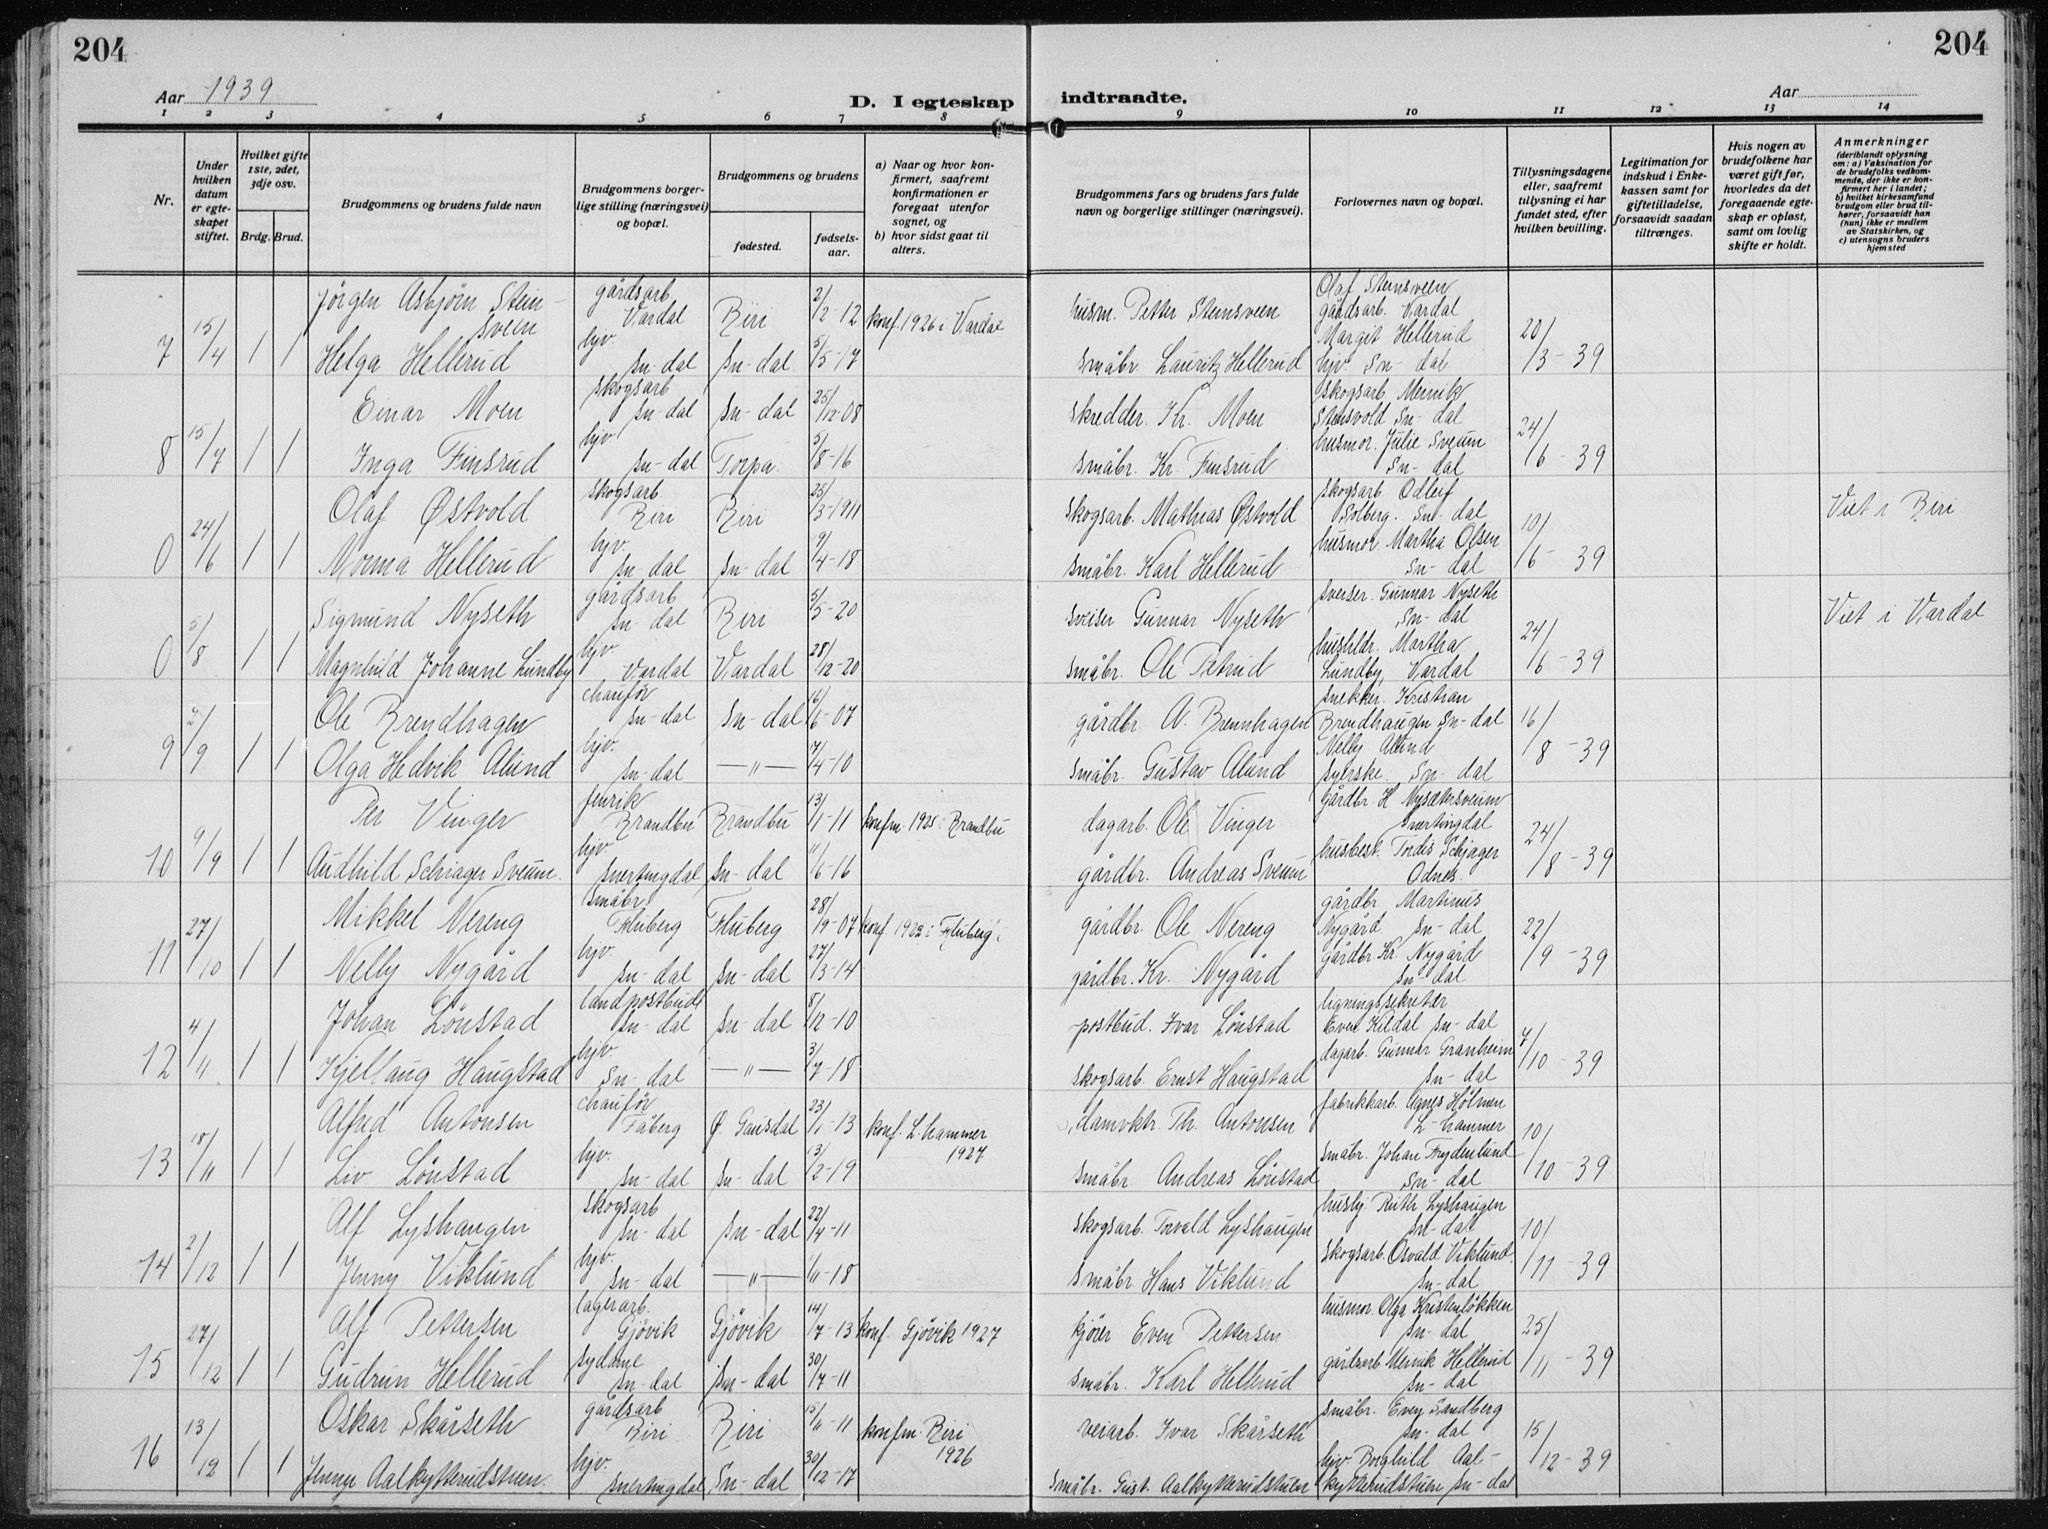 204
204
Aar 1939
D. I egteskap
indtraadte.
Aar
1 2 3 4 5 6 7 8 9 10 11 12 13 14
Nr.
Under hvilken datum er egteskapet stiftet.
Hvilket gifte 1ste, 2det, 3dje osv.
Brdg. Brud.
Brudgommens og brudens fulde navn
Brudgommens borgerlige stilling (næringsvei) og bopæl.
Brudgommens og brudens
fødested.
fødselsaar.
a) Naar og hvor konfirmert, saafremt konfirmationen er foregaat utenfor sognet, og
b) hvor sidst gaat til alters.
Brudgommens fars og brudens fars fulde navn og borgerlige stillinger (næringsvei).
Forlovernes navn og bopæl.
Tillysningsdagene eller, saafremt tillysning ei har fundet sted, efter hvilken bevilling.
Legitimation for indskud i Enkekassen samt for giftetilladelse, forsaavidt saadan tiltrænges.
Hvis nogen av brudefolkene har været gift før, hvorledes da det foregaaende egteskap er opløst, samt om lovlig skifte er holdt.
Anmerkninger
(deriblandt oplysning om: a) Vaksination for de brudefolks vedkommende, der ikke er konfirmert her i landet; b) hvilket kirkesamfund brudgom eller brud tilhører, forsaavidt han (hun) ikke er medlem av Statskirken, og c) utensogns bruders hjemsted
7 15/4 1 1 Jørgen Asbjørn Steinsveen gårdsarb Vardal Biri 2/2-12 konf. 1926 i Vardal husm. Petter Steinsveen Olaf Steinsveen gårdsarb. Vardal 20/3-39
Helga Hellerud hjv. Sn-dal Sn-dal 5/5-17 småbr. Lauritz Hellerud Margit Hellerud hjv. Sn-dal
8 15/7 1 1 Einar Moen skogsarb Sn-dal Sn-dal 25/12-08 skredder. Kr. Moen skogsarb. Meinik Stensvold Sn-dal 24/6-39
Inga Finsrud hjv. Sn-dal Torpa. 5/8-16 småbr. Kr. Finsrud husmor. Julie Sveum Sn-dal
0 24/6 1 1 Olaf Østvold skogsarb. Biri Biri 25/3-1911 skogsarb. Mathias Østvold skogsarb. Odleif Solberg. Sn-dal 10/6-39 Viet i Biri
Morma Hellerud hjv. Sn-dal Sn-dal 9/4-18 småbr. Karl Hellerud husmor Martha Olsen Sn-dal
0 5/8 1 1 Sigmund Nyseth gårdsarb Sn-dal Biri 5/5-20 sveiser Gunnar Nyseth sveiser. Gunnar Nyseth Sn-dal 24/6-39 Viet i Vardal
Magnhild Johanne Lundby hjv. Vardal Vardal 28/12-20 småbr. Ole Petrud hushldr. Martha Lundby, Vardal
9 2/9 1 1 Ole Brendhagen chauför Sn-dal Sn-dal 16/6-07 gårdbr. A. Brennhagen snekker. Kristian Brendhaugen Sn-dal 16/8-39
Olga Hedvik Alund hjv. Sn-dal —"— 7/4-10 småbr. Gustav Alund Nelly Alund syerske. Sn-dal
10 9/9 1 1 Per Vinger fenrik Brandbu Brandbu 13/1-11 konfm. 1925 i Brandbu dagarb. Ole Vinger gårdbr. H Nysætersveum Snertingdal 24/8-39
Audhild Schiager Sveum. hjv. Snertingdal Sn-dal 11/6-16 gårdbr. Andreas Sveum husbest. Tordis Schjager Odnes
11 27/10 1 1 Mikkel Nereng småbr. Fluberg Fluberg 28/9-07 konf. 1922 i Fluberg gårdbr. Ole Nereng gårdbr Martinus Nygård Sn-dal 22/9-39
Nelly Nygård hjv. Sn-dal Sn-dal 27/3-14 gårdbr. Kr. Nygård gårdbr Kr. Nygård Sn-dal
12 4/11 1 1 Johan Lönstad landpostbud Sn-dal Sn-dal 8/12-10 postbud. Ivar Lönstad ligningssekretær Even Kildal Sn-dal 7/10-39
Kjellaug Haugstad hjv. Sn-dal —"— 3/7-18 skogsarb Ernst Haugstad dagarb. Gunnar Granheim Sn-dal
13 18/11 1 1 Alfred Antonsen chauför Fåberg Ø. Gausdal 23/1-13 konf. L.hammer 1927 damvktr. Th. Antonsen fabrikkarb. Agnes Holmen L-hammer 10/10-39
Liv Lönstad hjv. Sn-dal Sn-dal 13/2-19 småbr. Andreas Lönstad småbr. Johan Frydenlund Sn-dal
14 2/12 1 1 Alf Lyshaugen skogsarb Sn-dal Sn-dal 22/4-11 skogsarb. Torvald Lyshaugen hushj. Ruth Lyshaugen Sn-dal 10/11-39
Jenny Viklund hjv. Sn-dal —"— 1/11-18 småbr. Hans Viklund skogsarb. Osvald Viklund. Sn-dal
15 27/12 1 1 Alf Pettersen lagerarb. Gjövik Gjövik 14/7-13 konf. Gjövik 1927 kjörer Even Pettersen husmor. Olga Kristenløkken Sn-dal 25/11-39
Gudrun Hellerud sydame Sn-dal Sn-dal 30/7-11 småbr. Karl Hellerud gårdsarb Meinik Hellerud Sn-dal
16 13/12 1 1 Oskar Skårseth gårdsarb Biri Biri 15/11-11 konfm. Biri 1926 veiarb. Ivar Skårseth småbr. Even Sandberg Sn-dal 15/12-39
Jenny Aalkytterudstuen. hjv. Snertingdal Sn-dal 30/12-17 småbr. Gust. Aalkytterudstuen hjv Borghild Aalkytterudstuen Sn-dal